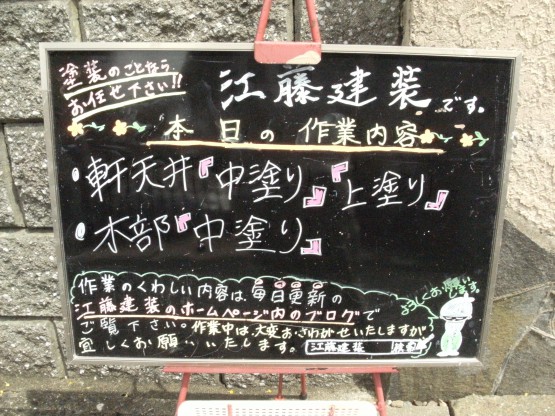 塗装のことなら
お任せ下さい!!
江藤建装です。
本日の作業内容
軒天井『中塗り』『上塗り』
木部『中塗り』
作業のくわしい内容は、毎日更新の
江藤建装のホームページ内のブログで
ご覧下さい。作業中は、大変おさわがせいたしますが
宜しくお願いいたします。
江藤建装
よろしくお願いします。